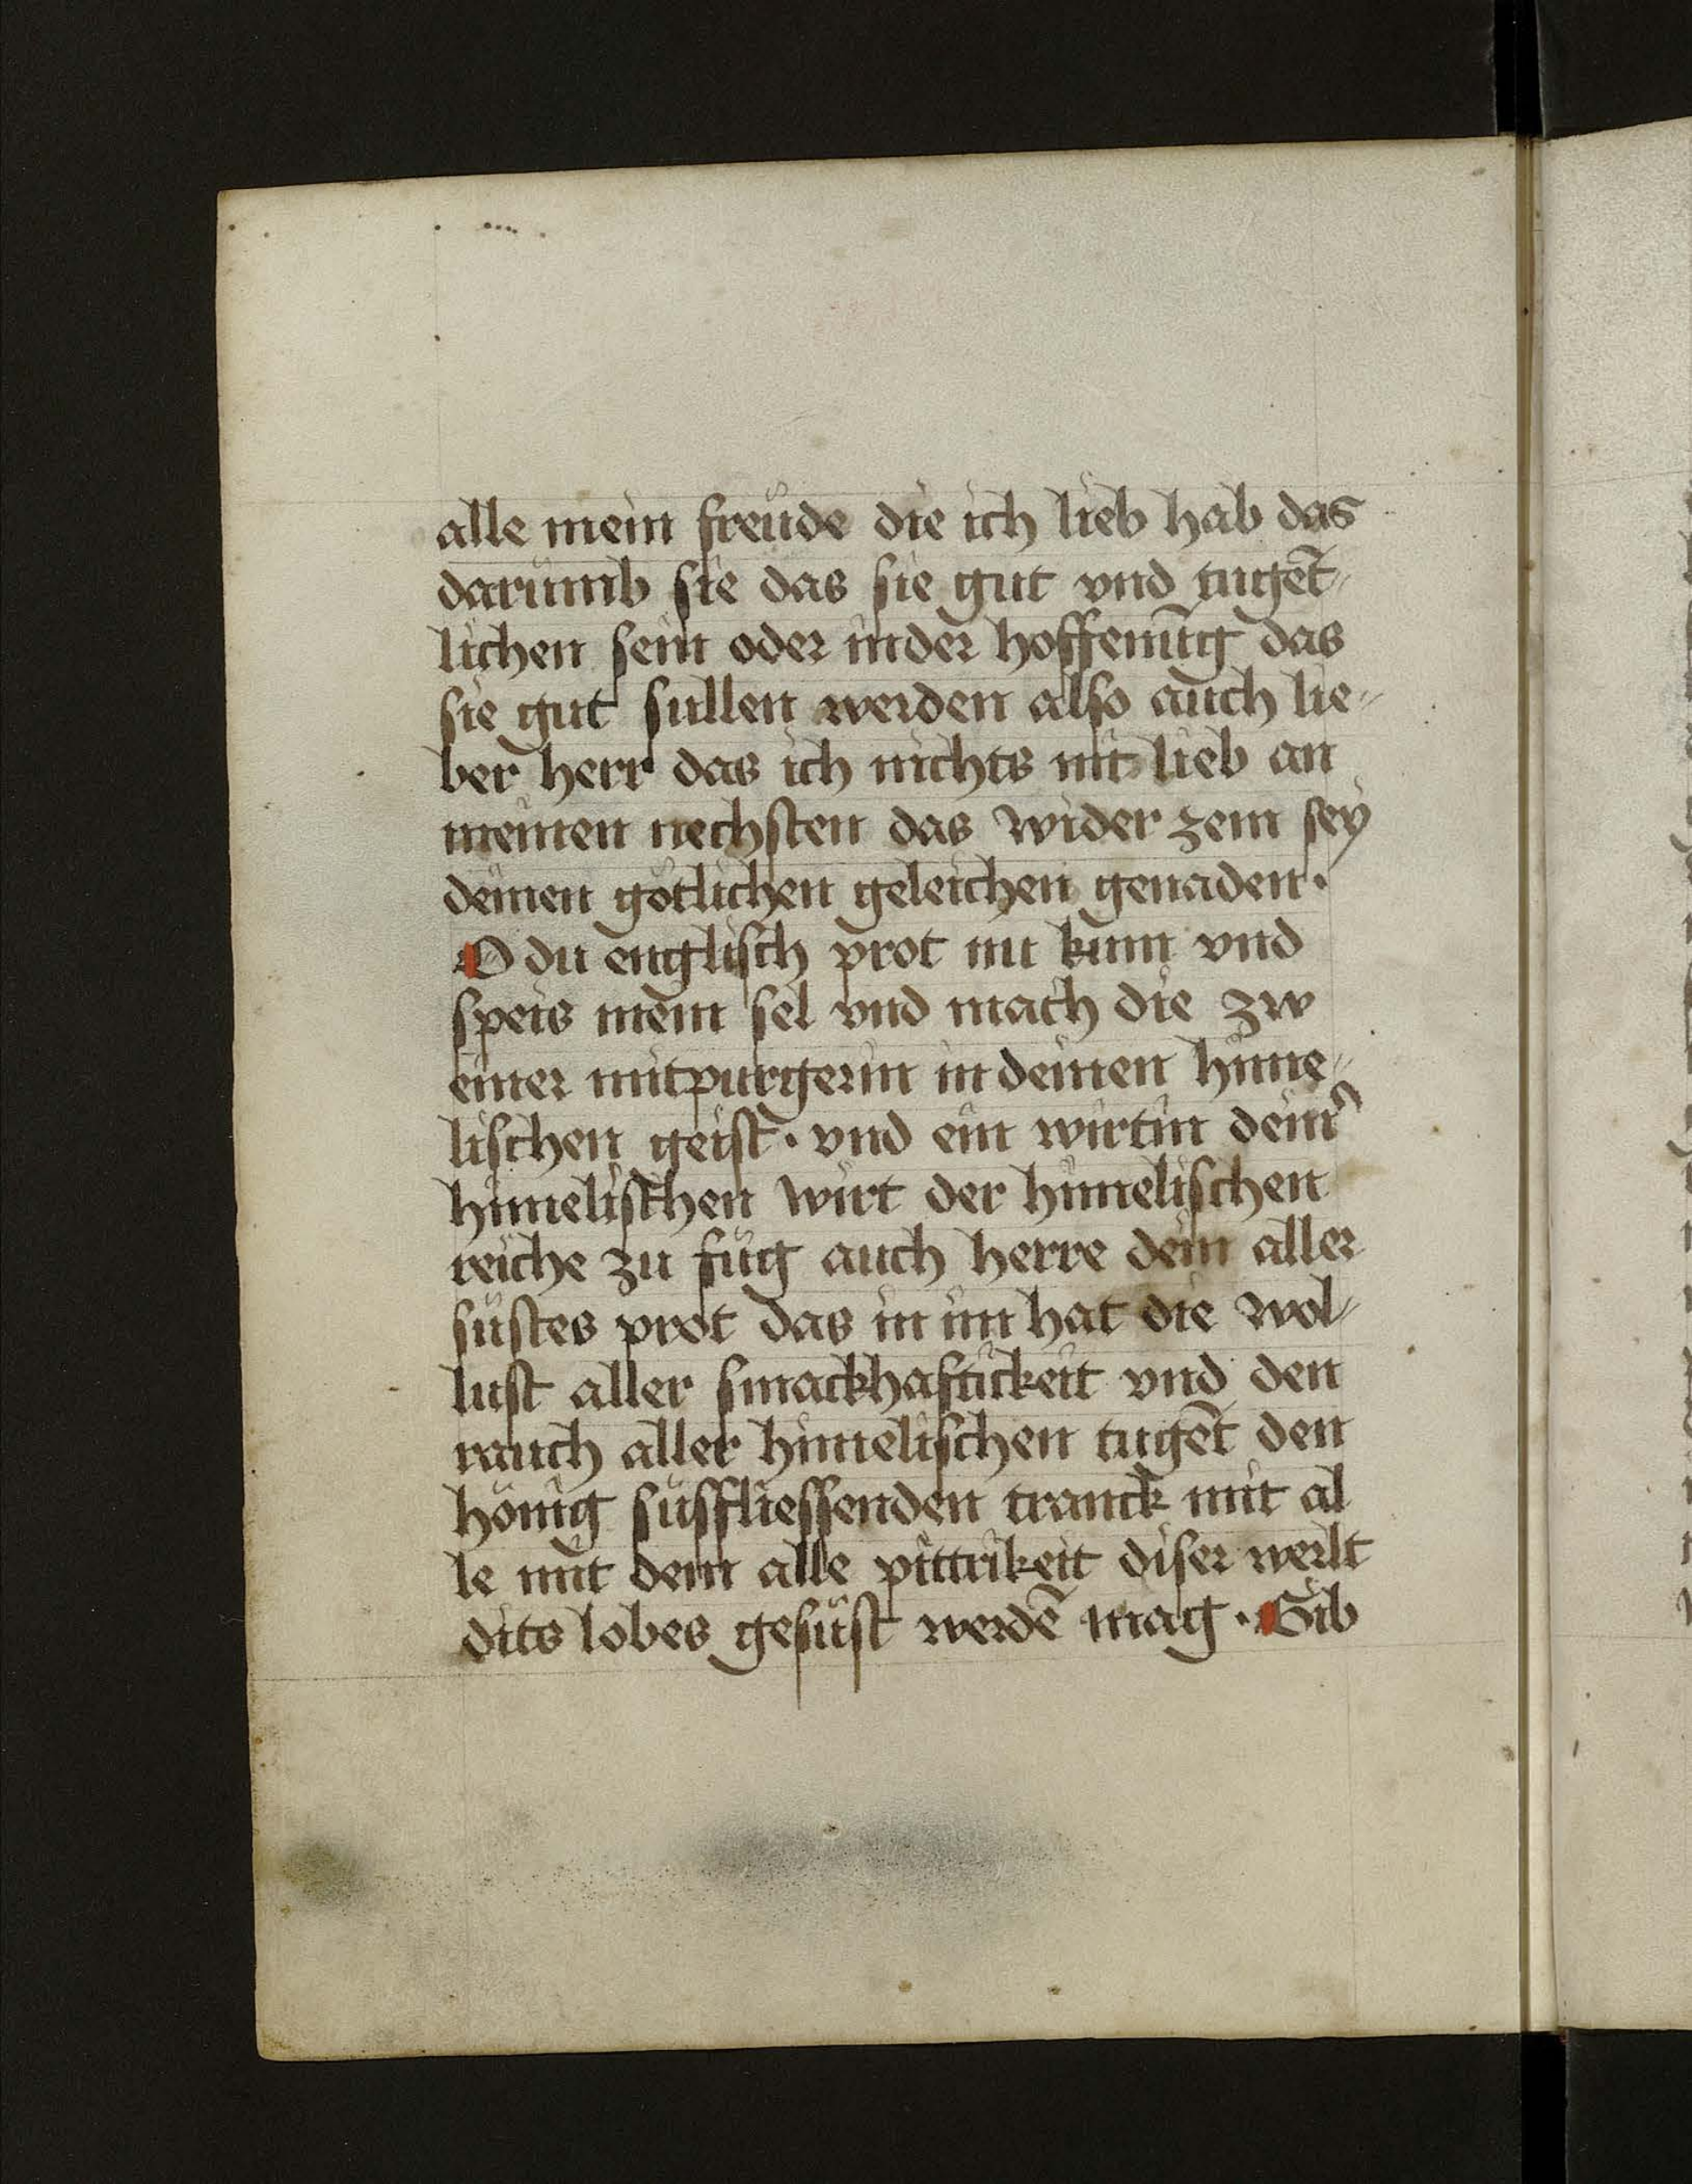 alle mein freude die ich lieb hab das
darumb sie das sie gut vnd tugēt⸗
lichen sein oder inder hoffenūg das
sie gut sullen werden also auch lie⸗
ber herr das ich nichts nit lieb an
meinen nechsten das wider zem sey
deinen götlichen geleichen genaden·
O du englisch prot nu kum vnd
speis mein sel vnd mach die zw
einer mitpurgerin in deinen hime⸗
lischen geist· vnd ein wirtin deinr̓
himelischen wirt der himelischen
reiche zu füg auch herre dein aller
süstes prot das in im hat die wol⸗
lust aller smackhaftickeit vnd den
rauch aller himelischen tugēt den
hönig süsfliessenden tranck mit al
le mit dem alle pittrikeit diser werlt
dits lobes gesüst werdē mag· Gib